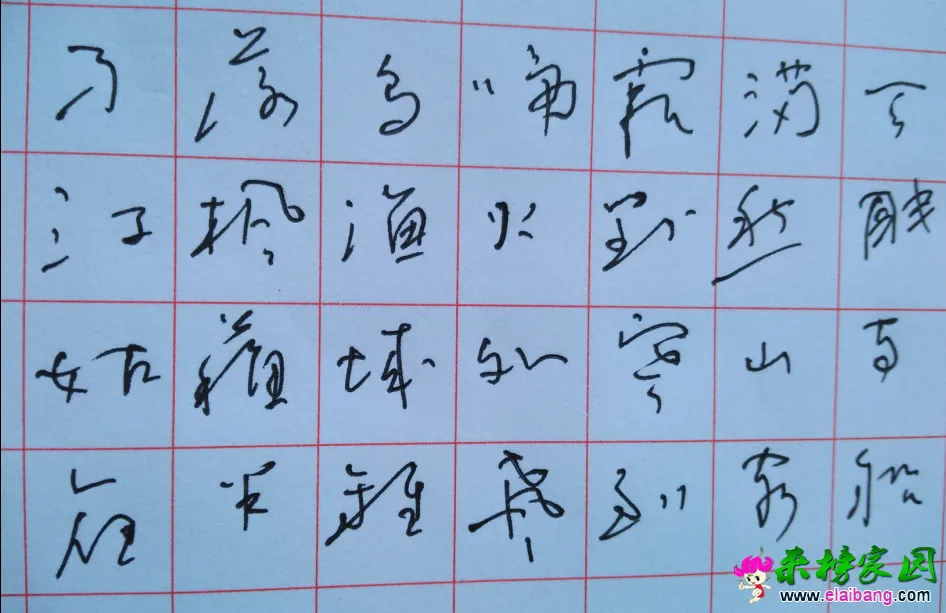 月落乌啼霜满天
江枫渔火对愁眠
姑苏城外寒山寺
夜半钟声到客船
来榜家园
www.elaibang.com